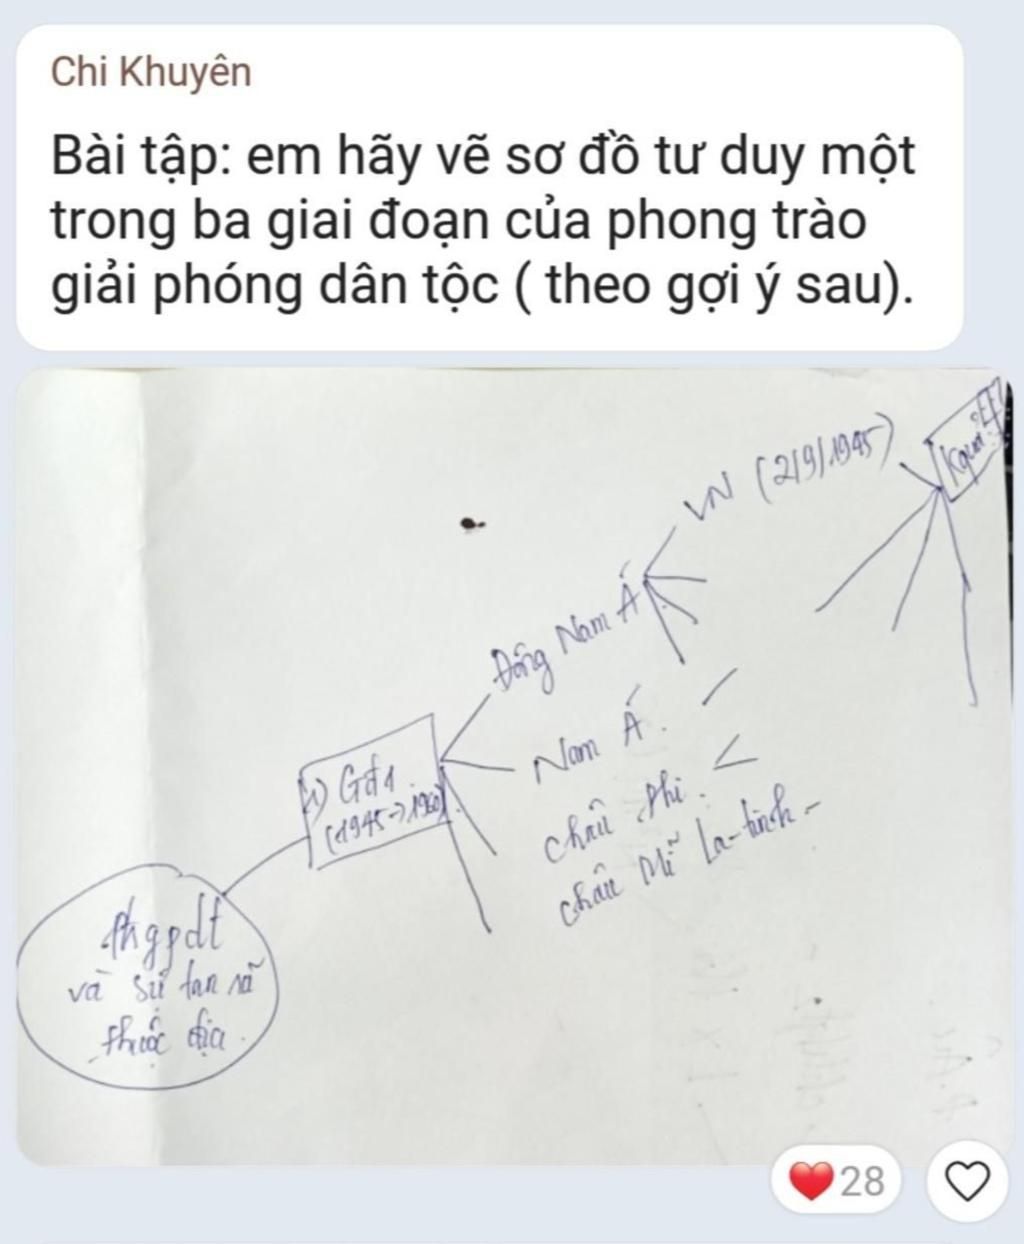 Chi Khuyên
Bài tập: em hãy vẽ sơ đồ tư duy một
trong ba giai đoạn của phong trào
giải phóng dân tộc ( theo gợi ý sau).
VN (2/9/1945)
Đông Nam Á
Nam Á.
châu Phi.
châu Mĩ La-tinh
1) Gđ1
(1945->1960)
và sự tan rã
thuộc địa.
28